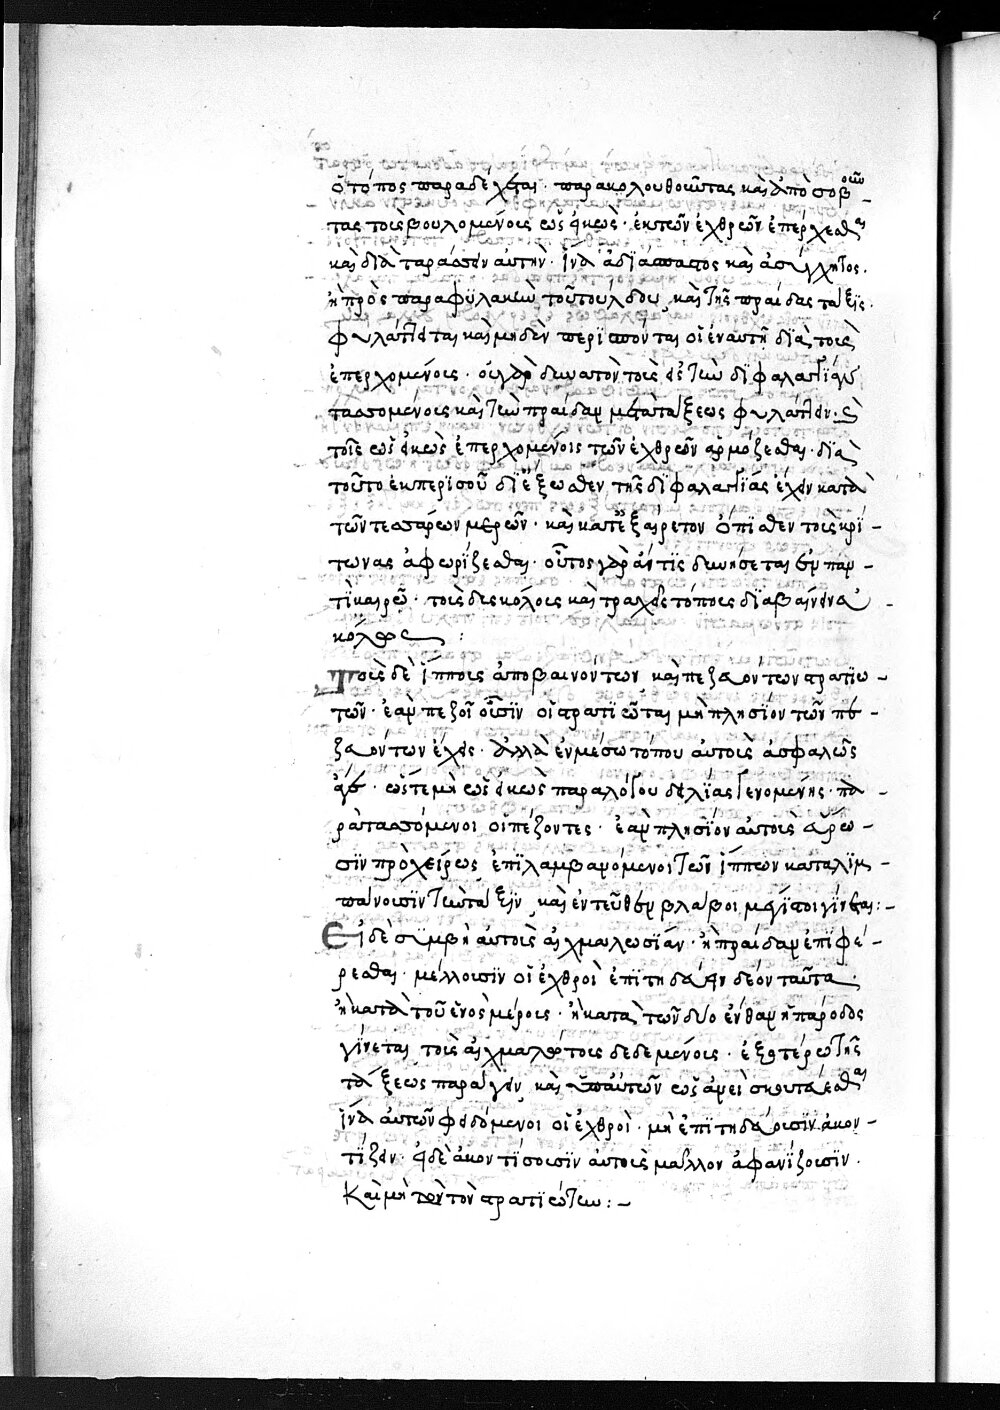 ὁ τόπος παραδέχεται· παρακολουθοῦντας καὶ ἀποσοβοῦν-
τας τοὺς βουλομένους ὡς εἰκὸς· ἐκ τῶν ἐχθρῶν ἐπέρχεσθαι
καὶ διαταράσσειν αὐτήν· ἵνα ἀδιάσπαστος καὶ ἀσύγχητος.
ἡ πρὸς παραφυλακὴν τοῦ τούλδου, καὶ τῆς πραίδας τάξις.
φυλάττεται καὶ μηδὲν περισπῶνται οἱ ἐν αὐτῇ διὰ τοὺς
ἐπερχομένους· οὐ γὰρ δυνατὸν τοὺς εἰς τὴν διφαλαγγίαν
τασσομένους καὶ τὴν πραίδαν μετὰ τάξεως φυλάττειν· καὶ
τοῖς ὡς εἰκὸς ἐπερχομένοις τῶν ἐχθρῶν ἁρμόζεσθαι· διὰ
τοῦτο ἐκ περισσοῦ δι' ἔξωθεν τῆς διφαλαγγίας ἔχειν κατὰ
τῶν τεσσάρων μερῶν· καὶ κατεξαίρετον ὄπισθεν τοὺς κρί-
τωνας ἀφωρίζεσθαι· οὕτος γὰρ ἄν τις δυνήσεται ἐν παν-
τὶ καιρῷ· τοὺς δυσκόλους καὶ τραχεῖς τόπους διαβαίνειν ἀ-
κόπως :
Τοὺς δὲ ἵππους ἀποβαινόντων καὶ πεζευόντων στρατιω-
τῶν· ἐὰν πεζοὶ οὖσιν οἱ στρατιῶται μὴ πλησίον τῶν πε-
ζευόντων ἔχειν· ἀλλὰ ἐν μέσω τόπου αὐτοὺς ἀσφαλῶς
ἄγειν· ὥστε μὴ ὡς εἰκὸς παραλόγου δειλίας γενομένης· πα-
ρατασσόμενοι οἱ πέζοντες· ἐὰν πλησίον αὐτοὺς εὕρω-
σιν προχείρως ἐπιλαμβανόμενοι τῶν ἵππων καταλιμ-
πάνουσιν τὴν τάξιν, καὶ ἐντεῦθεν βλάβοι μέγιστοι γίνεται: -
Εἰ δὲ συμβῇ αὐτοὺς αἰχμαλωσίαν· ἢ πραίδαν ἐπιφέ-
ρεσθαι· μέλλουσιν οἱ ἐχθροὶ ἐπιτηδεύειν δέον ταῦτα
ἢ κατὰ τοῦ ἑνὸς μέρους· ἢ κατὰ τῶν δύο ἔνθαν ἡ πάροδος
γίνεται τοὺς αἰχμαλώτους δεδεμένους· ἐξωτέρω τῆς
τάξεως παράγειν, καὶ ὑπ' αὐτῶν ὡς ἀμεὶ σκουτεύεσθαι
ἵνα αὐτῶν φειδόμενοι οἱ ἐχθροὶ· μὴ ἐπιτηδεύουσιν ἀκον-
τίζειν· εἰ δὲ ἀκοντίσουσιν αὐτοὺς μᾶλλον ἀφανίζουσιν.
Καὶ μὴ τὸν στρατιώτην: -